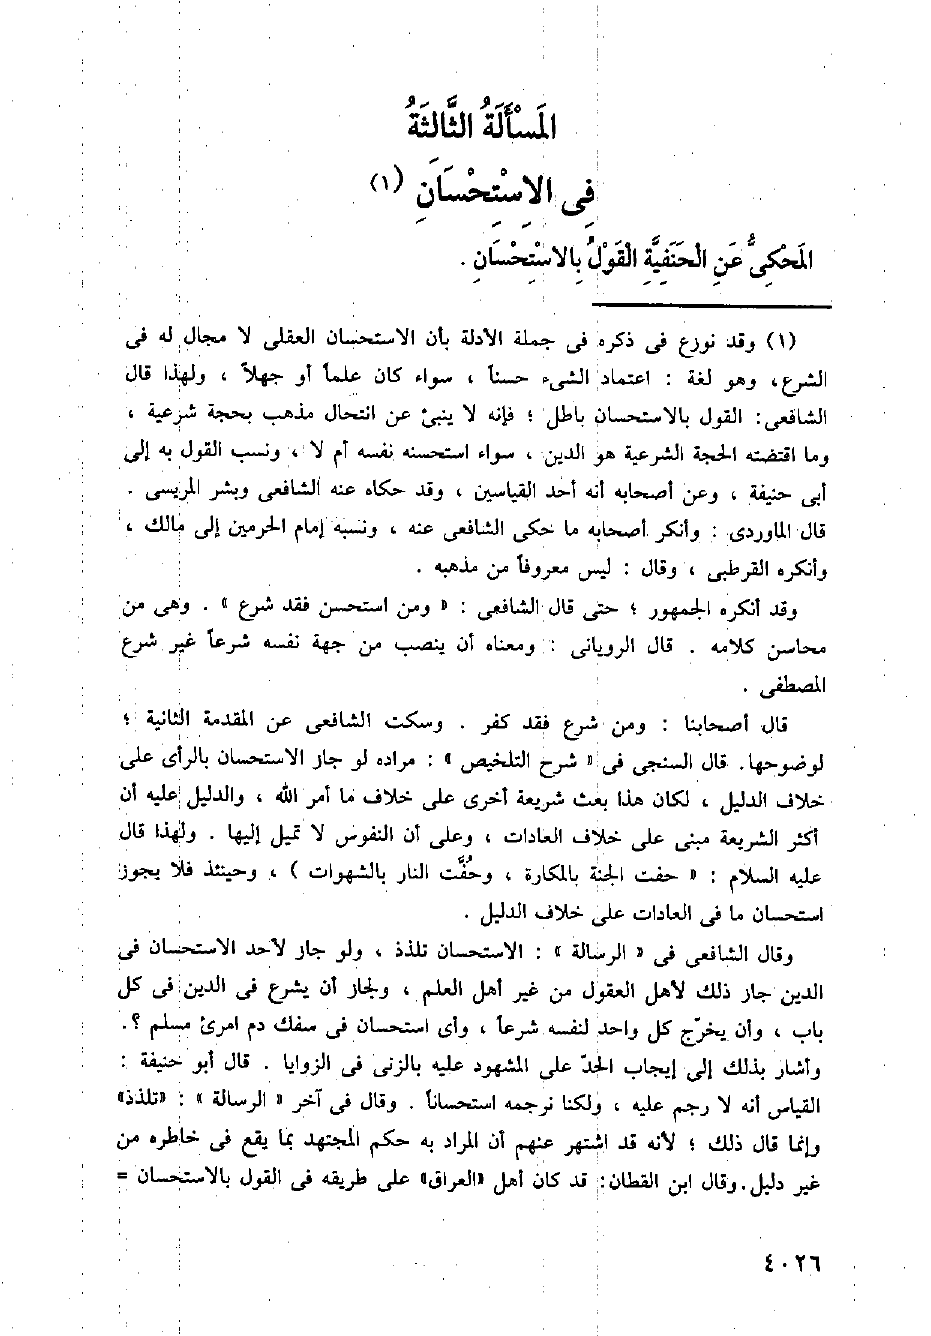 المَسْأَلَةُ الثَّالِثَةُ
فِى الاِسْتِحْسَانِ (١)
المَحْكِىُّ عَنِ الْحَنَفِيَّةِ الْقَوْلُ بِالاسْتِحْسَانِ .
(١) وقد نوزع فى ذكره فى جملة الأدلة بأن الاستحسان العقلى لا مجال له فى
الشرع، وهو لغة : اعتماد الشىء حسناً ، سواء كان علماً أو جهلاً ، ولهذا قال
الشافعى: القول بالاستحسان باطل ؛ فإنه لا ينبئ عن انتحال مذهب بحجة شرعية ،
وما اقتضته الحجة الشرعية هو الدين ، سواء استحسنه نفسه أم لا ، ونسب القول به إلى
أبى حنيفة ، وعن أصحابه أنه أحد القياسين ، وقد حكاه عنه الشافعى وبشر المريسى .
قال الماوردى : وأنكر أصحابه ما حكى الشافعى عنه ، ونسبه إمام الحرمين إلى مالك ،
وأنكره القرطبى ، وقال : ليس معروفاً من مذهبه .
وقد أنكره الجمهور ؛ حتى قال الشافعى : « ومن استحسن فقد شرع » . وهى من
محاسن كلامه . قال الرويانى : ومعناه أن ينصب من جهة نفسه شرعاً غير شرع
المصطفى .
قال أصحابنا : ومن شرع فقد كفر . وسكت الشافعى عن المقدمة الثانية ؛
لوضوحها. قال السنجى فى « شرح التلخيص » : مراده لو جاز الاستحسان بالرأى على
خلاف الدليل ، لكان هذا بعث شريعة أخرى على خلاف ما أمر الله ، والدليل عليه أن
أكثر الشريعة مبنى على خلاف العادات ، وعلى أن النفوس لا تميل إليها . ولهذا قال
عليه السلام : « حفت الجنة بالمكارة ، وحُفَّت النار بالشهوات ) ، وحينئذ فلا يجوز
استحسان ما فى العادات على خلاف الدليل .
وقال الشافعى فى « الرسالة » : الاستحسان تلذذ ، ولو جاز لأحد الاستحسان فى
الدين جاز ذلك لأهل العقول من غير أهل العلم ، ولجاز أن يشرع فى الدين فى كل
باب ، وأن يخرّج كل واحد لنفسه شرعاً ، وأى استحسان فى سفك دم امرئ مسلم ؟.
وأشار بذلك إلى إيجاب الحدّ على المشهود عليه بالزنى فى الزوايا . قال أبو حنيفة :
القياس أنه لا رجم عليه ، ولكنا نرجمه استحساناً . وقال فى آخر « الرسالة » : «تلذذ»
وإنما قال ذلك ؛ لأنه قد اشتهر عنهم أن المراد به حكم المجتهد بما يقع فى خاطره من
غير دليل. وقال ابن القطان: قد كان أهل «العراق» على طريقه فى القول بالاستحسان =
٤٠٢٦